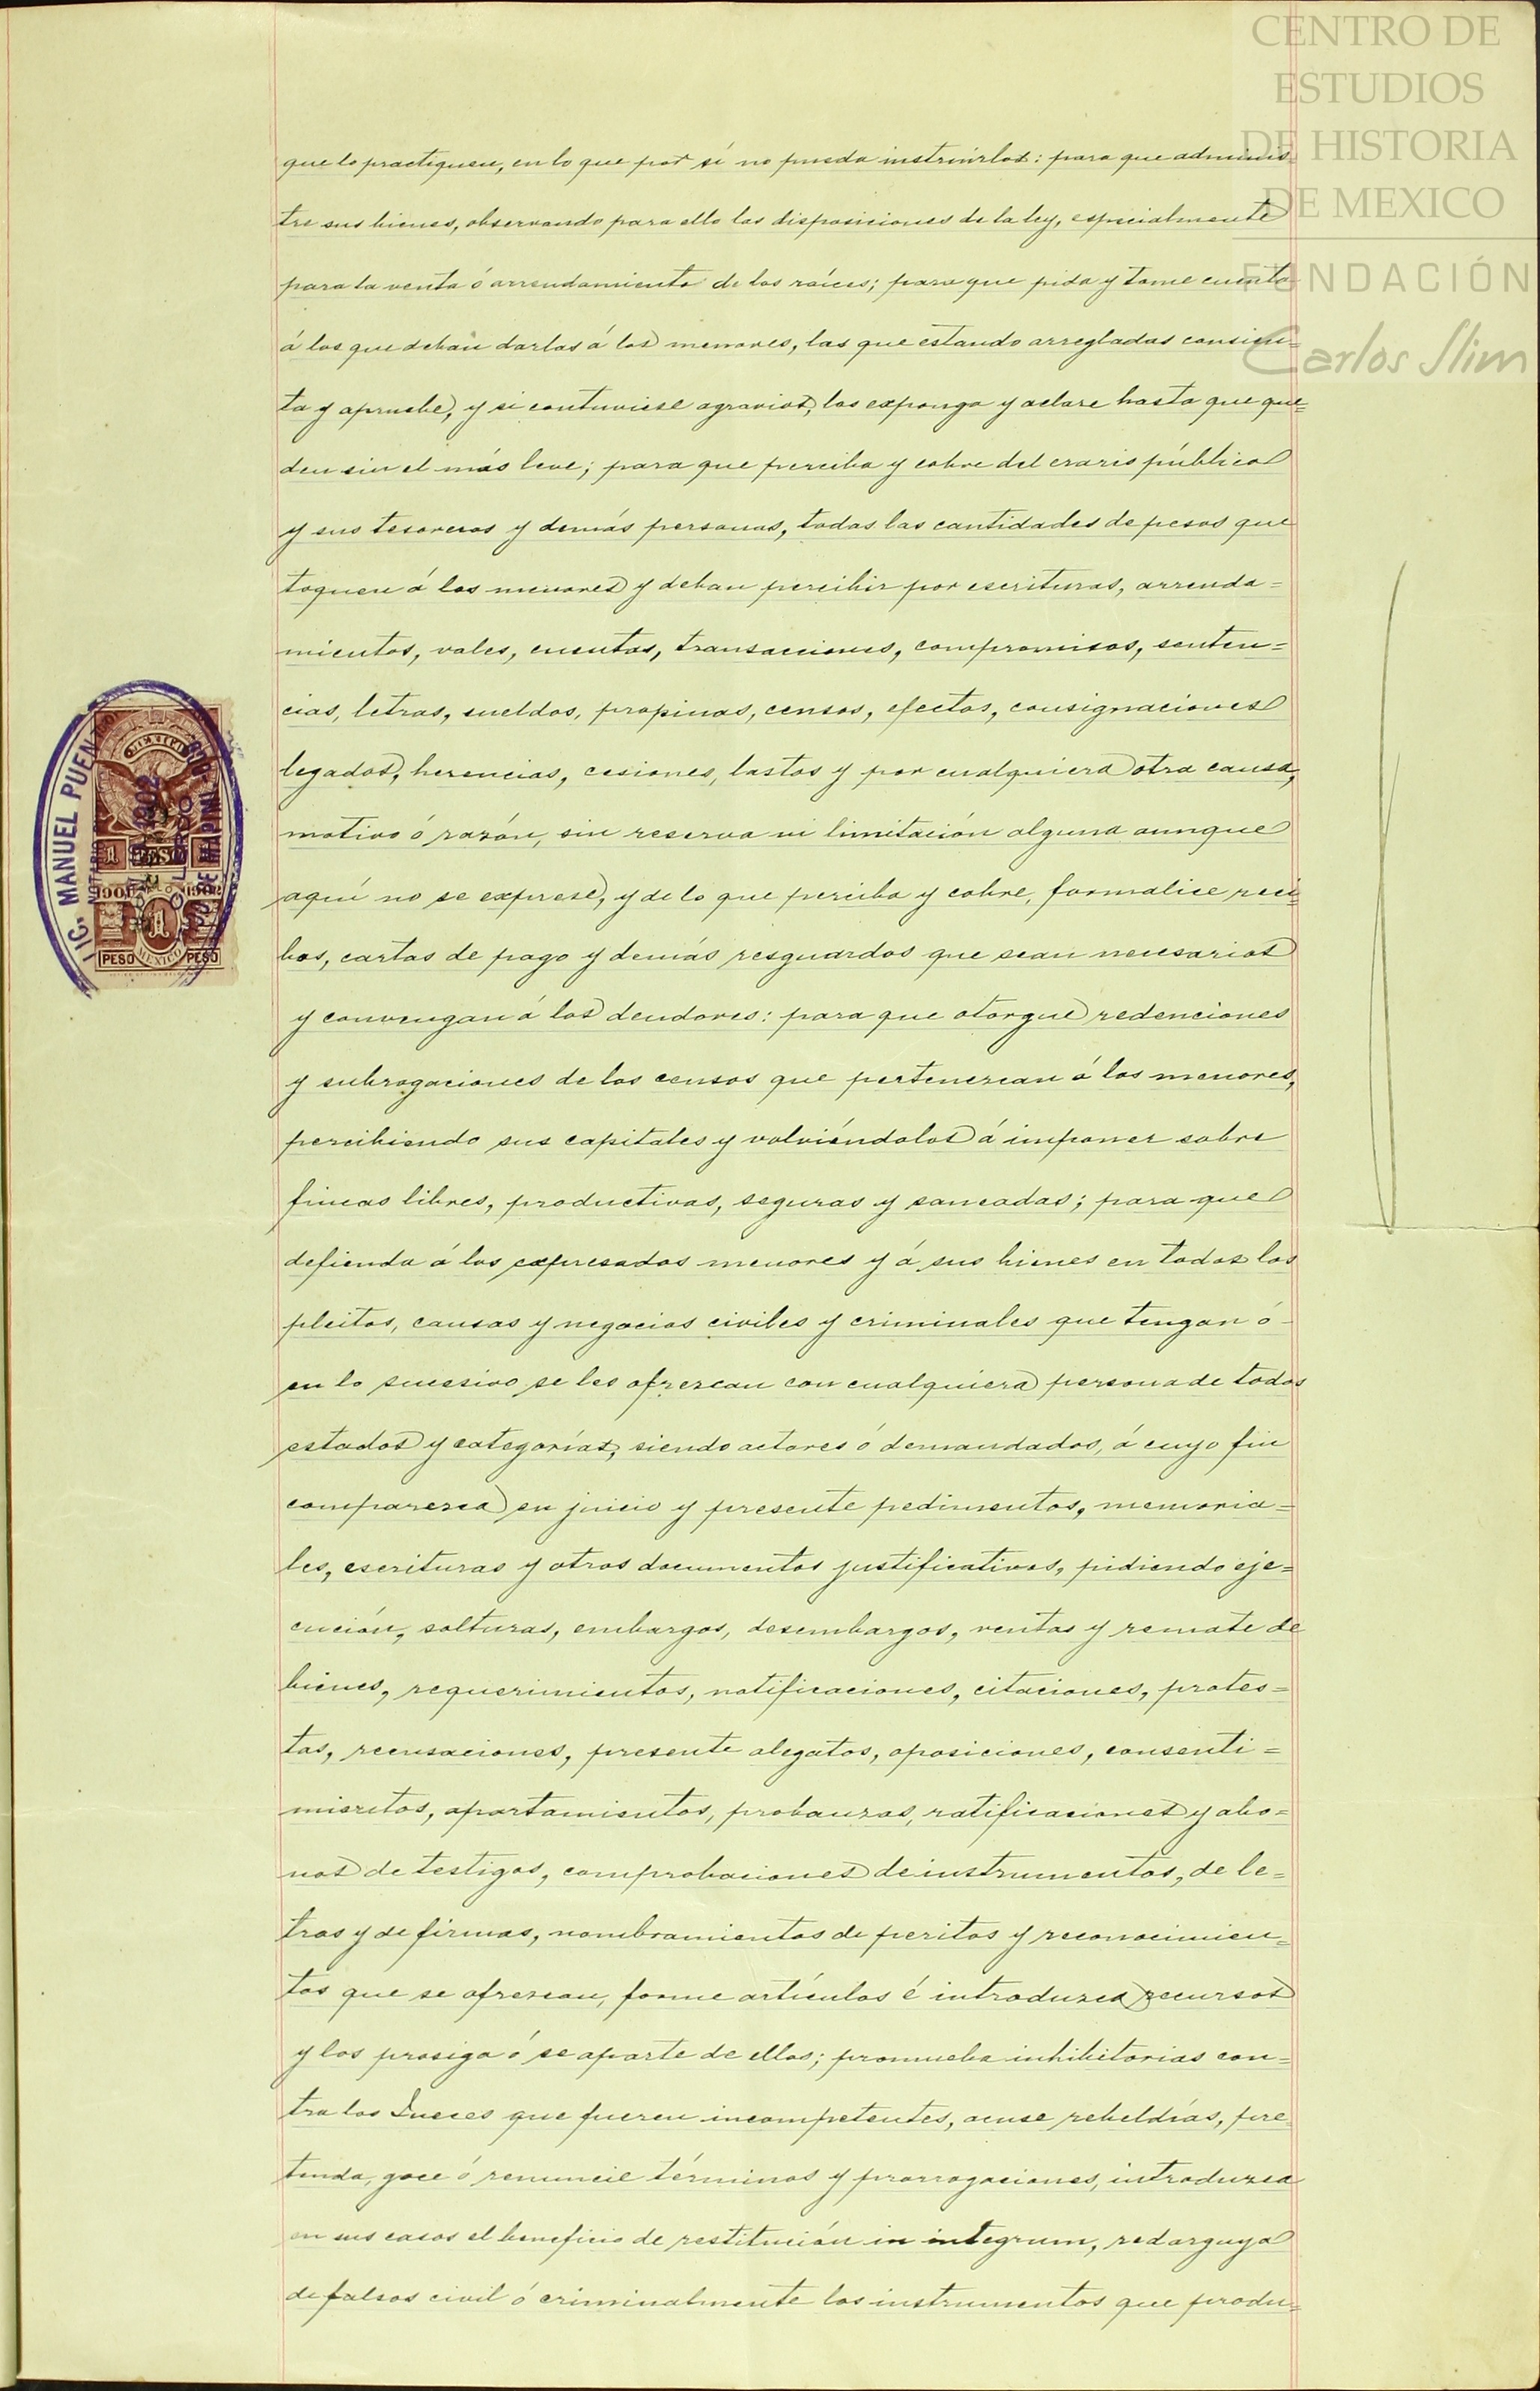 CENTRO DE
ESTUDIOS
DE HISTORIA
DE MEXICO
FUNDACIÓN
Carlos Slim
que lo practiquen, en lo que por sí no pueda instruírlos: para que adminis-
tre sus bienes, observando para ello las disposiciones de la ley, especialmente
para la venta ó arrendamiento de los raíces; para que pida y tome cuenta
á los que deban darlas á los menores, las que estando arregladas consien=
ta y apruebe, y si contuviese agravios, los exponga y aclare hasta que que=
den sin el más leve; para que perciba y cobre del erario público
y sus tesoreros y demás personas, todas las cantidades de pesos que
toquen á los menores y deban percibir por escrituras, arrenda=
mientos, vales, cuentas, transacciones, compromisos, senten=
cias, letras, sueldos, propinas, censos, efectos, consignaciones
legados, herencias, cesiones, lastos y por cualquiera otra causa,
motivo ó razón, sin reserva ni limitación alguna aunque
aquí no se exprese, y de lo que perciba y cobre, formalice reci=
bos, cartas de pago y demás resguardos que sean necesarios
y convengan á los deudores: para que otorgue redenciones
y subrogaciones de los censos que pertenezcan á los menores,
percibiendo sus capitales y volviéndolos á imponer sobre
fincas libres, productivas, seguras y saneadas; para que
defienda á los expresados menores y á sus bienes en todos los
pleitos, causas y negocios civiles y criminales que tengan ó
en lo sucesivo se les ofrezcan con cualquiera persona de todos
estados y categorías, siendo actores ó demandados, á cuyo fin
comparezca en juicio y presente pedimentos, memoria=
les, escrituras y otros documentos justificativos, pidiendo eje=
cución, solturas, embargos, desembargos, ventas y remate de
bienes, requerimientos, notificaciones, citaciones, protes=
tas, recusaciones, presente alegatos, oposiciones, consenti=
mientos, apartamientos, probanzas, ratificaciones y abo=
nos de testigos, comprobaciones de instrumentos, de le=
tras y de firmas, nombramientos de peritos y reconocimien=
tos que se ofrezcan, forme artículos é introduzca recursos
y los prosiga ó se aparte de ellos; promueba inhibitorias con=
tra los Jueces que fueren incompetentes, acuse rebeldías, pre
tenda, goce ó renuncie términos y prorrogaciones, introduzca
en sus casos el beneficio de restitución in integrum, redarguya
de falsos civil ó criminalmente los instrumentos que produ=
LIC. MANUEL PUEN
NOTARIO
1902
MEXICO
1 PESO
1901 1902
1
PESO MEXICO PESO